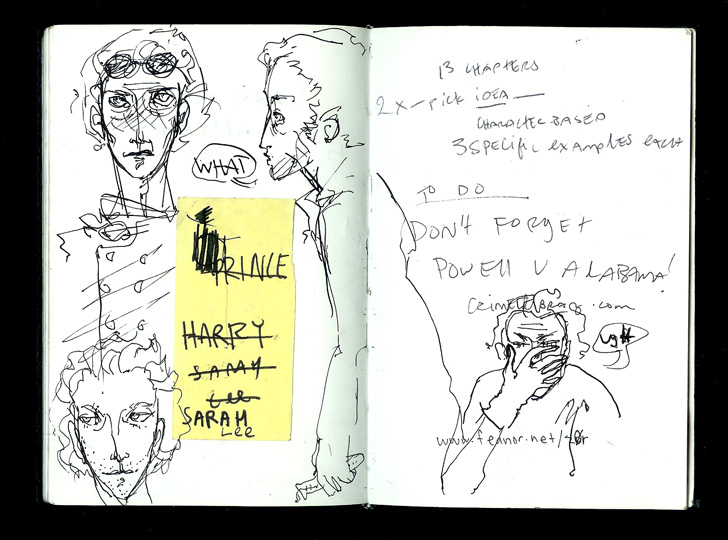 WHAT
PRINCE
HARRY
SARAH
Lee
SARAH
Lee
13 CHAPTERS
2x - pick IDEA
CHARACTER BASED
3 SPECIFIC examples each
TO DO
DON'T FORGET
POWELL V ALABAMA!
.com
ugh
www.feanor.net/